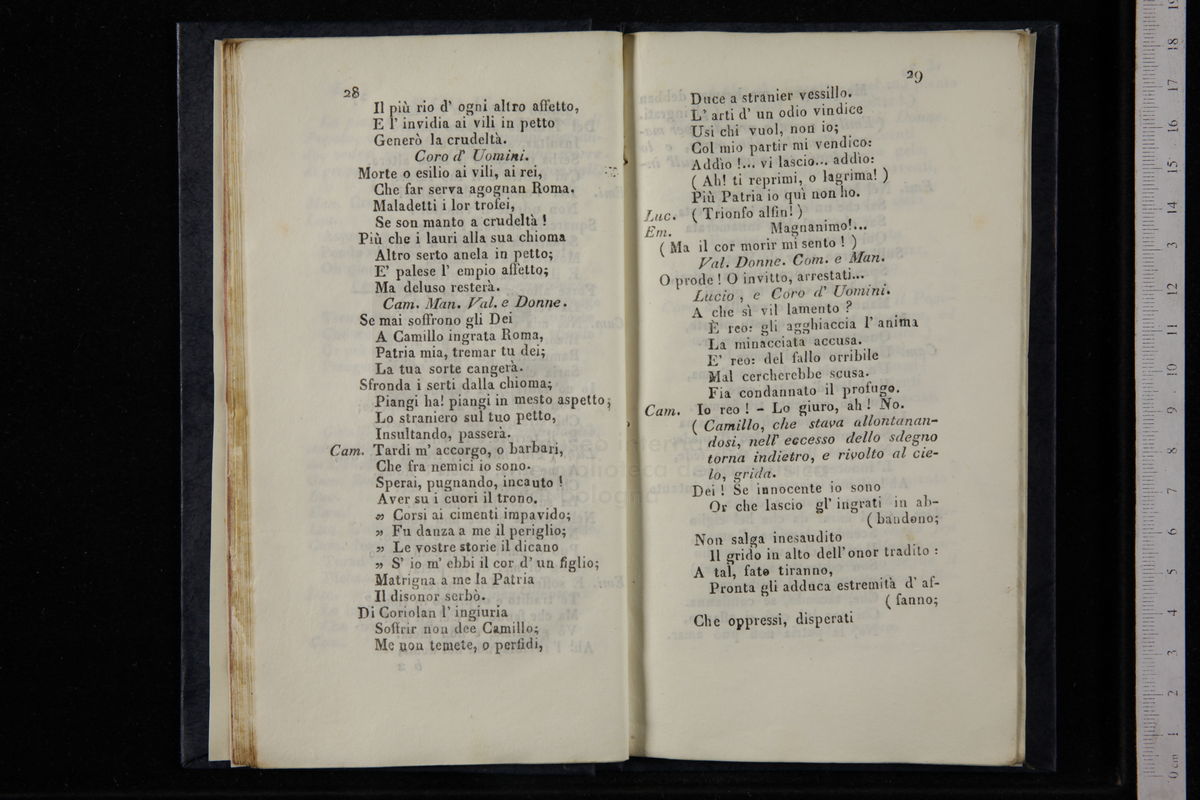 28
Il più rio d' ogni altro affetto,
E l' invidia ai vili in petto
Generò la crudeltà.
Coro d' Uomini.
Morte o esilio ai vili, ai rei,
Che far serva agognan Roma.
Maladetti i lor trofei,
Se son manto a crudeltà !
Più che i lauri alla sua chioma
Altro serto anela in petto;
E' palese l' empio affetto;
Ma deluso resterà.
Cam. Man. Val. e Donne.
Se mai soffrono gli Dei
A Camillo ingrata Roma,
Patria mia, tremar tu dei;
La tua sorte cangerà.
Sfronda i serti dalla chioma;
Piangi ha! piangi in mesto aspetto;
Lo straniero sul tuo petto,
Insultando, passerà.
Cam. Tardi m' accorgo, o barbari,
Che fra nemici io sono.
Sperai, pugnando, incauto !
Aver su i cuori il trono.
„ Corsi ai cimenti impavido;
„ Fu danza a me il periglio;
„ Le vostre storie il dicano
„ S' io m' ebbi il cor d' un figlio;
Matrigna a me la Patria
Il disonor serbò.
Di Coriolan l' ingiuria
Soffrir non dee Camillo;
Me non temete, o perfidi,
29
Duce a stranier vessillo.
L' arti d' un odio vindice
Usi chi vuol, non io;
Col mio partir mi vendico:
Addio !... vi lascio... addio:
( Ah! ti reprimi, o lagrima! )
Più Patria io quì non ho.
Luc. ( Trionfo alfin! )
Em. Magnanimo!...
( Ma il cor morir mi sento ! )
Val. Donne. Com. e Man.
O prode ! O invitto, arrestati...
Lucio , e Coro d' Uomini.
A che sì vil lamento ?
È reo: gli agghiaccia l' anima
La minacciata accusa.
E' reo: del fallo orribile
Mal cercherebbe scusa.
Fia condannato il profugo.
Cam. Io reo ! - Lo giuro, ah ! No.
( Camillo, che stava allontanan-
dosi, nell' eccesso dello sdegno
torna indietro, e rivolto al cie-
lo, grida.
Dei ! Se innocente io sono
Or che lascio gl' ingrati in ab-
( bandono;
Non salga inesaudito
Il grido in alto dell' onor tradito :
A tal, fato tiranno,
Pronta gli adduca estremità d' af-
( fanno;
Che oppressi, disperati
0 cm 1 2 3 4 5 6 7 8 9 10 11 12 13 14 15 16 17 18 19